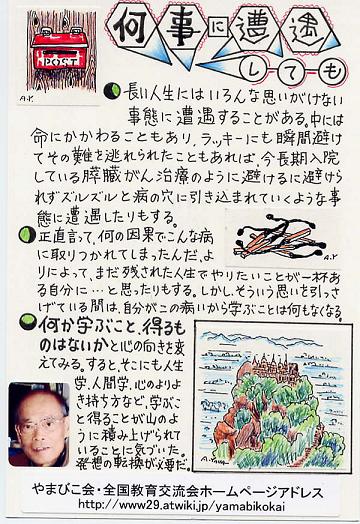 何事に遭遇
しても
POST
A.Y.
長い人生にはいろんな思いがけない
事態に遭遇することがある。中には
命にかかわることもあり、ラッキーにも瞬間避け
てその難を逃れられたこともあれば、今長期入院
している膵臓がん治療のように避けるに避けら
れずズルズルと病の穴に引き込まれていくような事
態に遭遇したりもする。
正直言って、何の因果でこんな病
に取りつかれてしまったんだ、よ
りによって、まだ残された人生でやりたいことが一杯あ
る自分に…と思ったりもする。しかし、そういう思いを引っさ
げている間は、自分がこの病いから学ぶことは何もなくなる。
A.Y
何か学ぶこと、得るも
のはないかと心の向きを変
えてみる。すると、そこにも人生
学、人間学、心のよりよ
き持ち方など、学ぶこ
と得ることが山のよ
うに積み上げられて
いることに気づいた。
発想の転換が必要だ。
A.Yama
やまびこ会・全国教育交流会ホームページアドレス
http://www29.atwiki.jp/yamabikokai